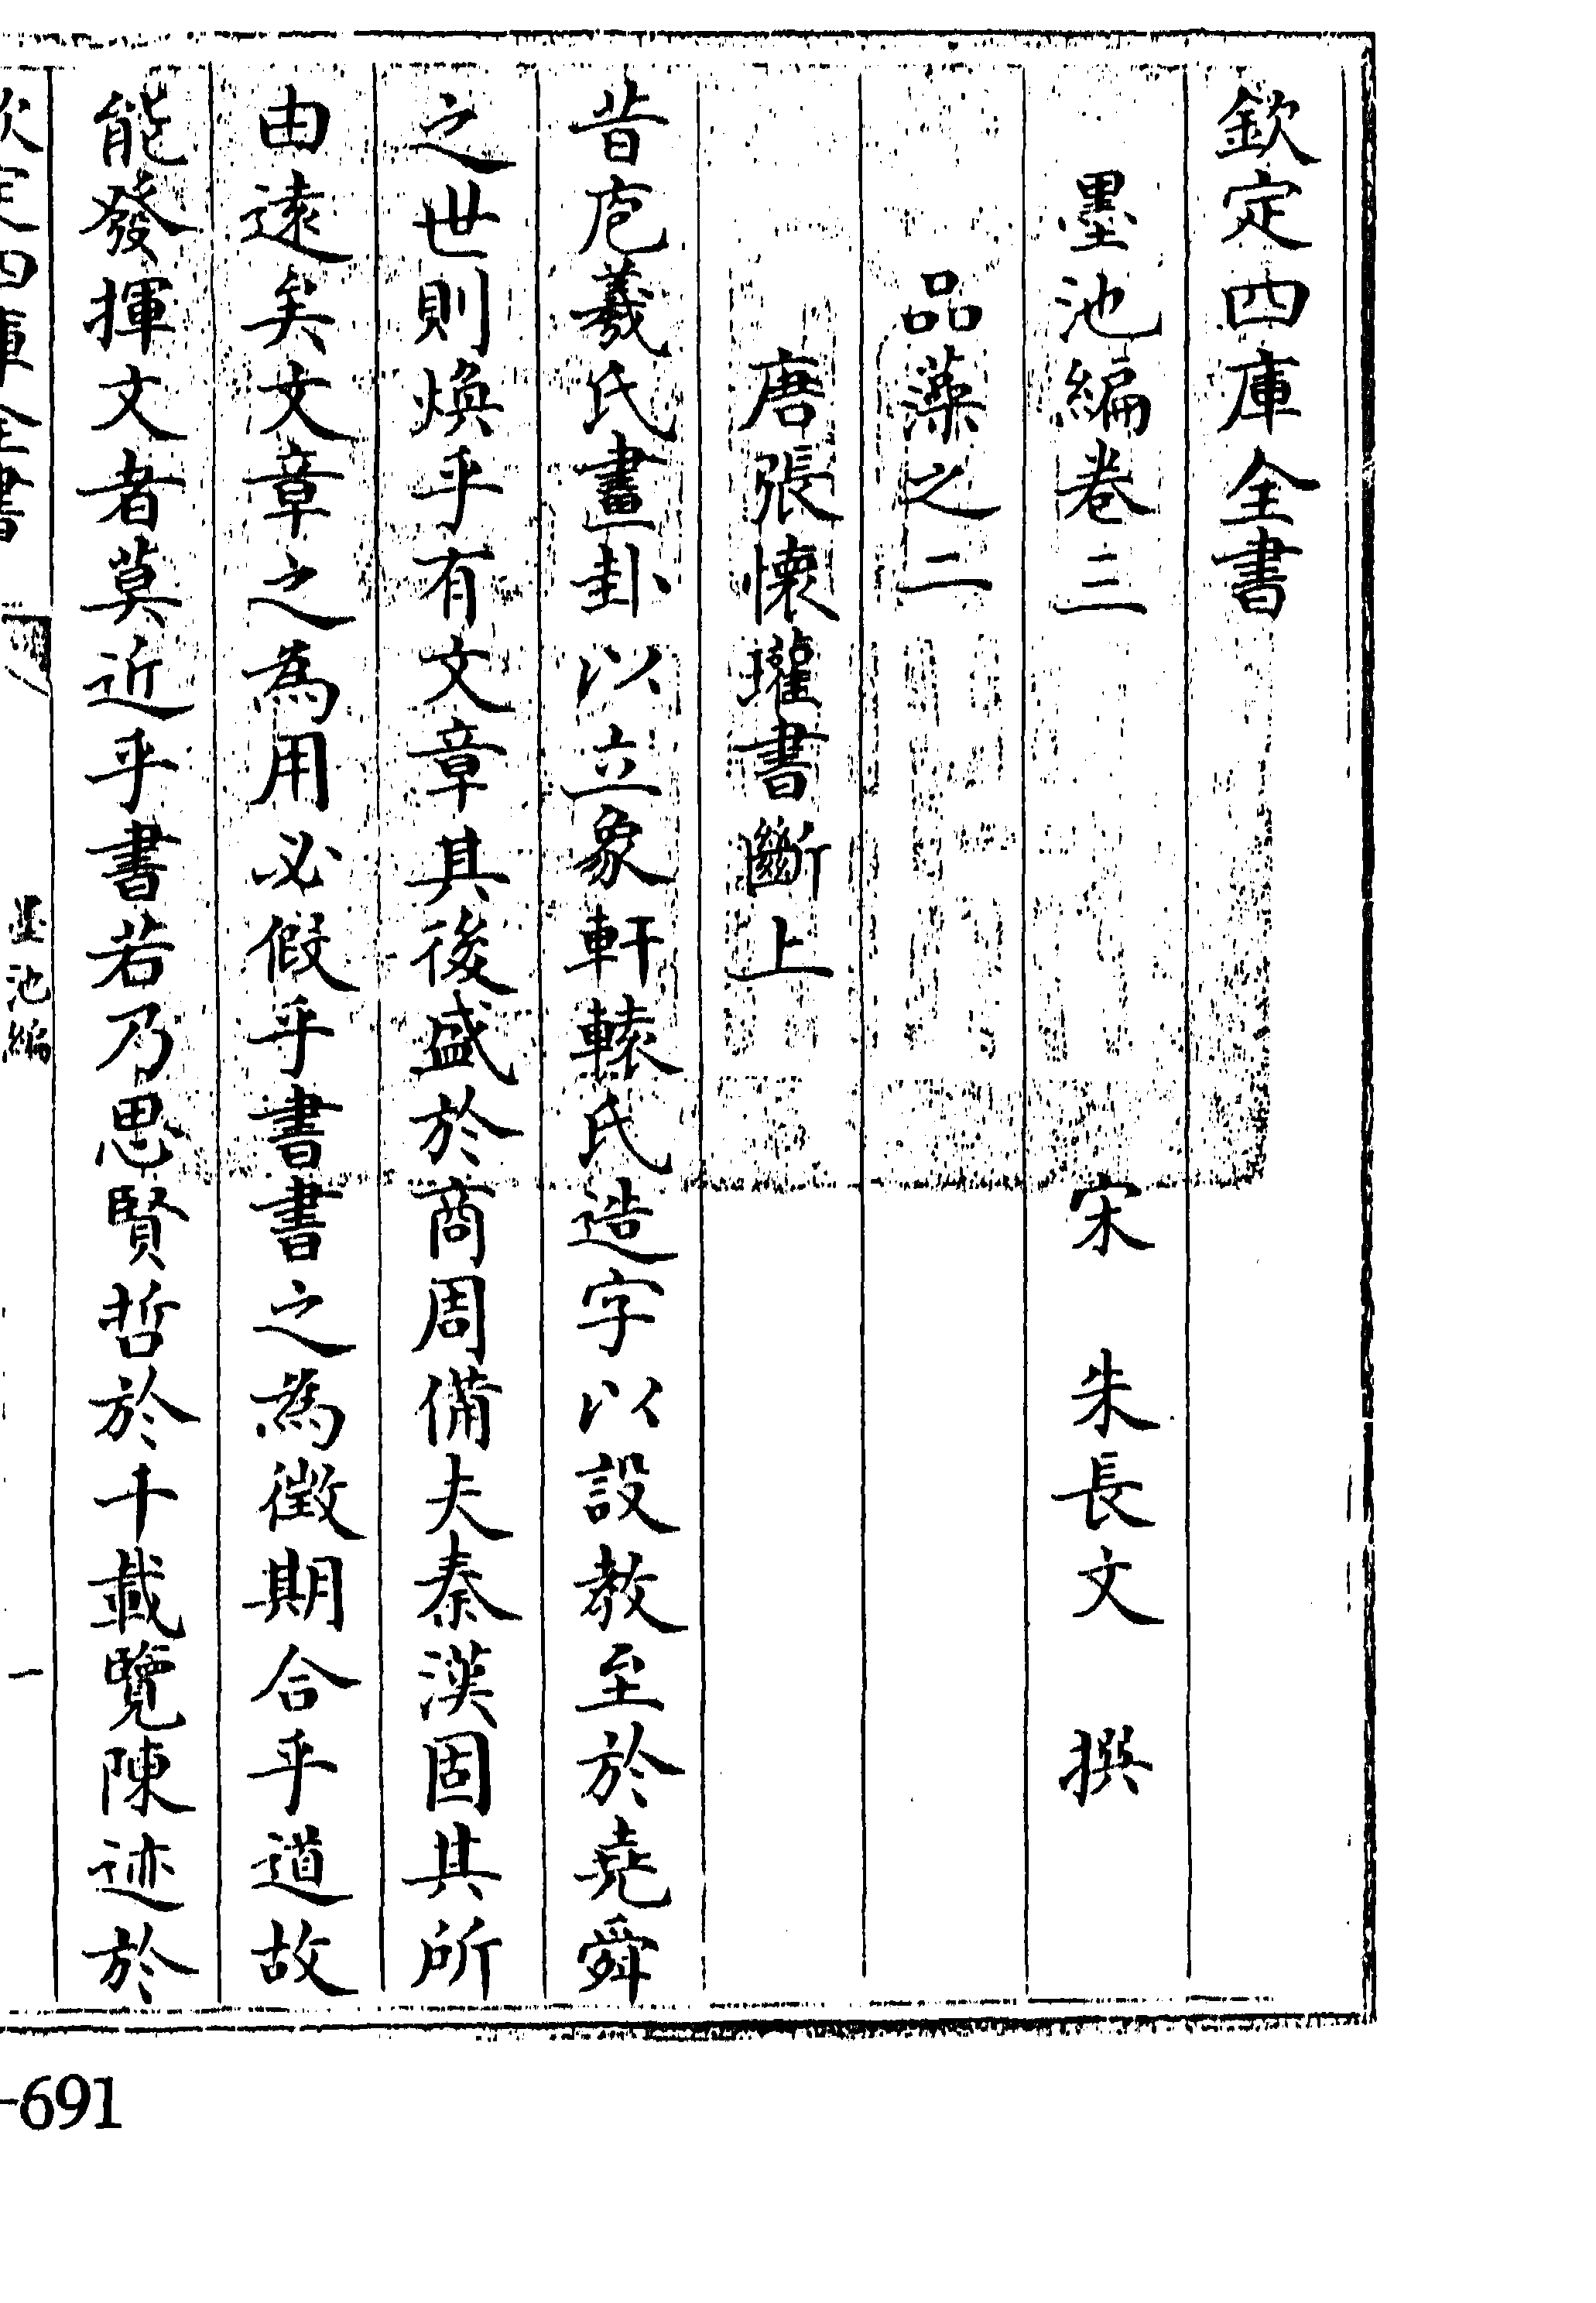 欽定四庫全書
墨池編卷三 宋 朱長文 撰
品藻之二
唐張懷瓘書斷上
昔庖羲氏畫卦以立象軒轅氏造字以設教至於堯舜
之世則煥乎有文章其後盛於商周備夫秦漢固其所
由遠矣文章之為用必假乎書書之為徵期合乎道故
能發揮文者莫近乎書若乃思賢哲於千載覽陳迹於
欽定四庫全書 墨池編 一
-691